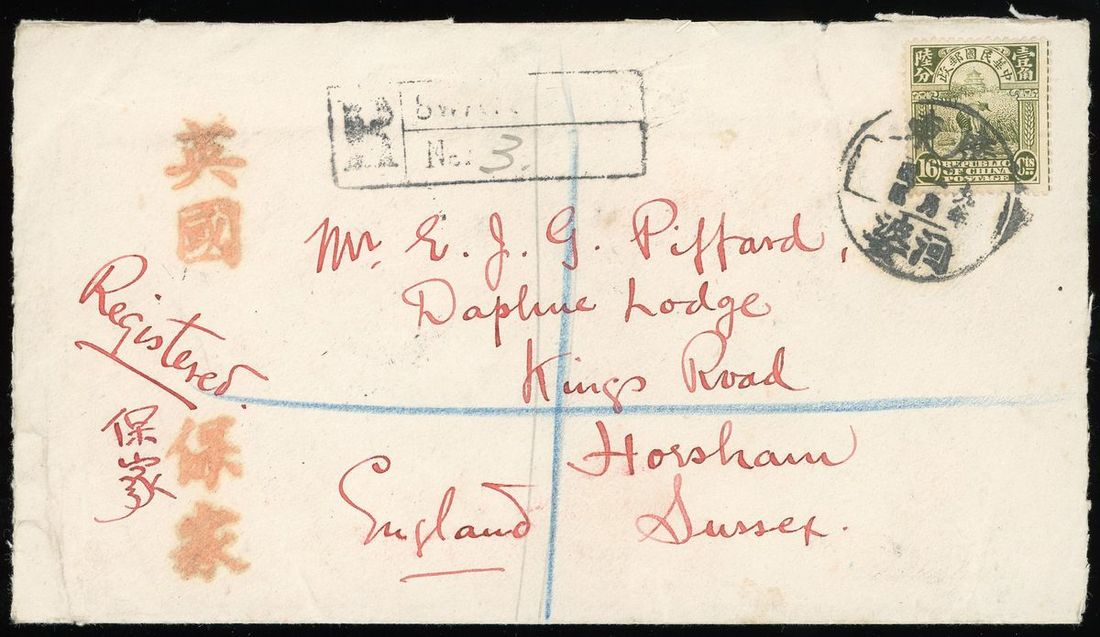 英國
保家
R
No. 3.
中華民國郵政
壹角
陸分
16
Cts
REPUBLIC
OF CHINA
POSTAGE
河婆
Mr E. J. G. Piffard,
Daphne Lodge
Kings Road
Horsham
Sussex.
England
Registered.
保家